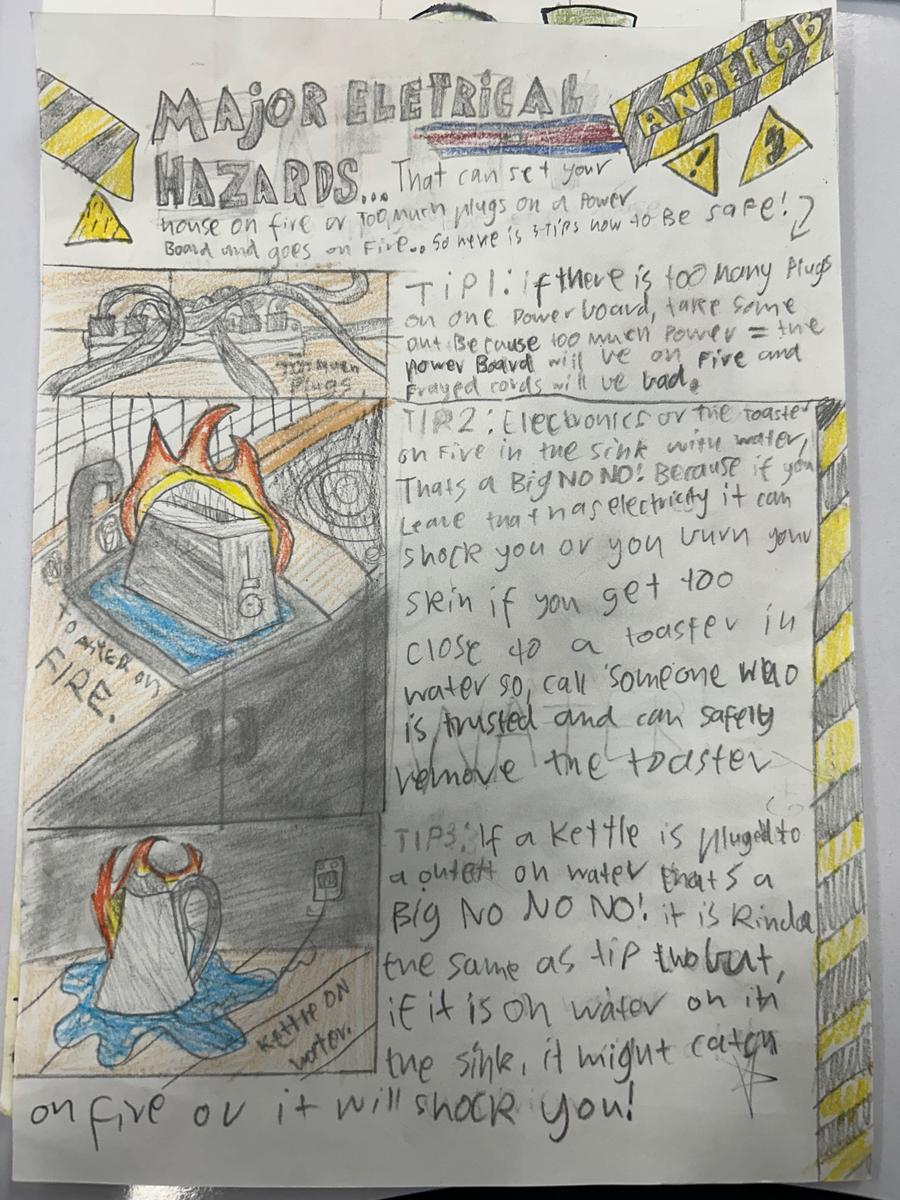 MAJOR ELETRICAL
ANDEI GB
HAZARDS... That can set your
house on fire or Too Much plugs on a Power
Board and goes on Fire.. So here is 3-Tips how to Be safe!
TIP1: if there is too many Plugs
on one Power board, take some
out Because too much Power = the
power Board will be on Fire and
Frayed cords will be bad.
Too Much
Plugs
TIP2: Electronics or the toaster
on Fire in the sink with water,
Thats a Big NO NO! Because if you
Leave that has electricity it can
shock you or you burn your
skin if you get too
close to a toaster in
water so, call someone who
is trusted and can safely
remove the toaster
TOASTER on
FIRE.
TIP3: If a Kettle is pluged to
a outlett on water thats a
Big NO NO NO! it is kinda
the same as tip two but,
if it is on water on in
the sink, it might catch
on fire or it will shock you!
Kettle ON
water.